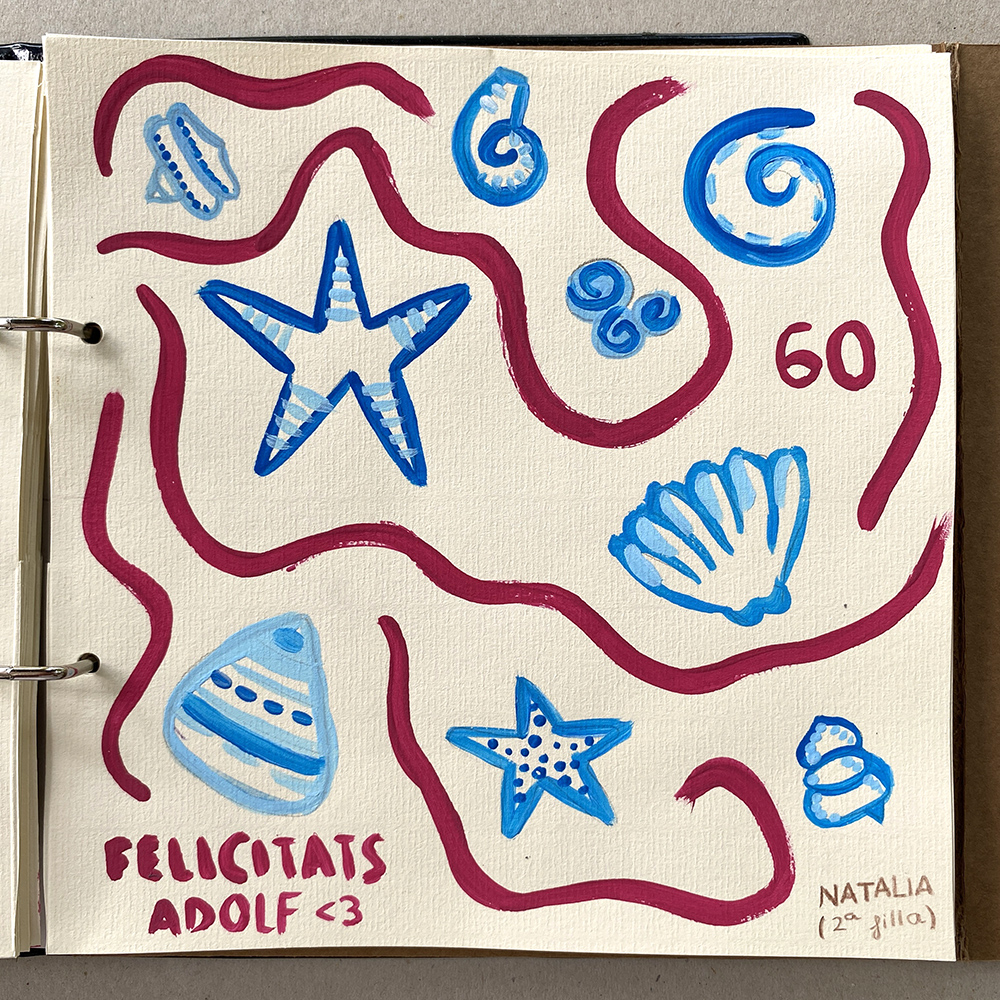 60
FELICITATS
ADOLF <3
NATALIA
(2ª filla)